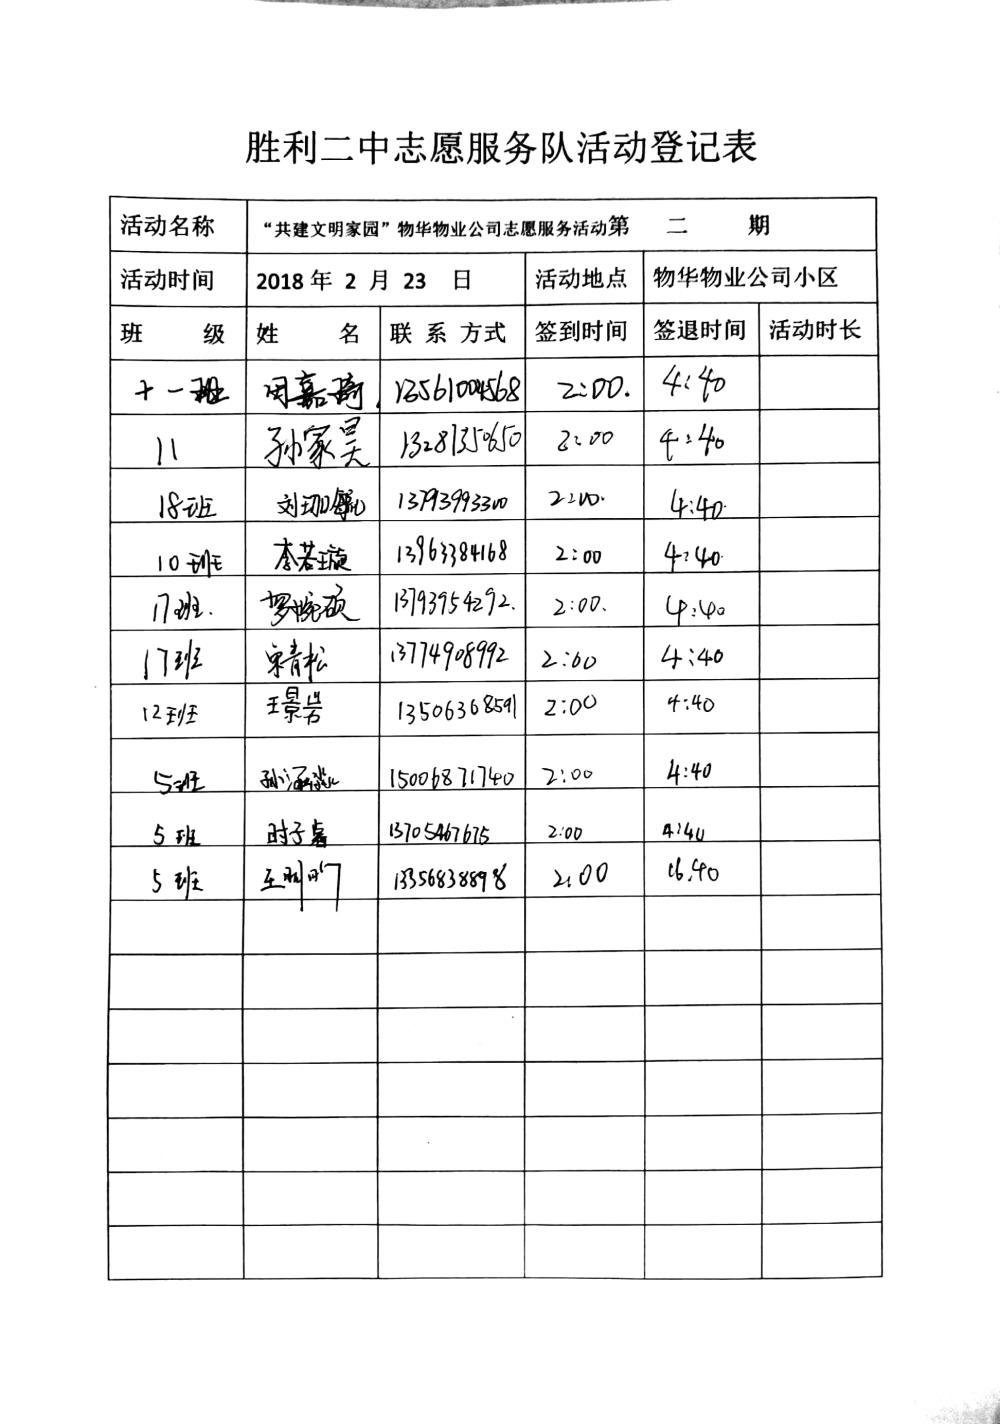 胜利二中志愿服务队活动登记表
活动名称 “共建文明家园”物华物业公司志愿服务活动第 二 期
活动时间 2018 年 2 月 23 日 活动地点 物华物业公司小区
班 级 姓 名 联 系 方式 签到时间 签退时间 活动时长
十一班 周嘉琦 13561004568 2:00. 4:40
11 孙家昊 13281350650 2:00 4:40
18班 刘 13793993300 2:00. 4:40.
10班 李若璇 13963384168 2:00 4:40
17班. 罗婉硕 13793954292. 2:00. 4:40
17班 宋青松 13774908992 2:00 4:40
12班 王景岩 13506368591 2:00 4:40
5班 孙涵 15006871740 2:00 4:40
5班 时子 13705467675 2:00 4:40
5班 王 13356838898 2:00 16:40